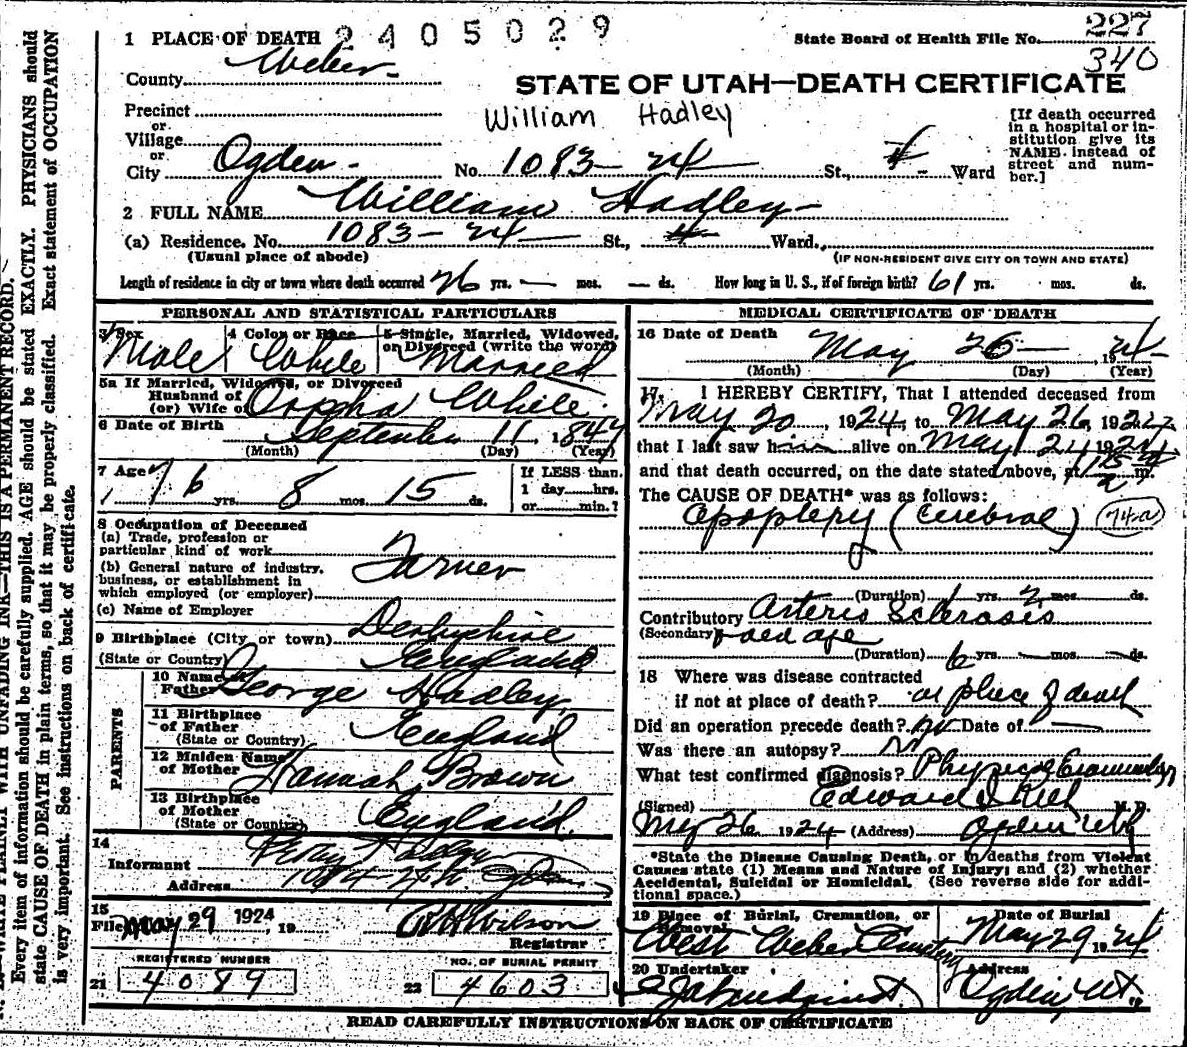 1 PLACE OF DEATH 2405029
State Board of Health File No. 227
340
County Weber
STATE OF UTAH—DEATH CERTIFICATE
Precinct
or
Village
or
City Ogden No. 1083-24 St., 4 Ward
William Hadley
[If death occurred
in a hospital or in-
stitution give its
NAME. instead of
street and num-
ber.]
2 FULL NAME William Hadley
(a) Residence. No. 1083-24 St., 4 Ward.
(Usual place of abode)
(IF NON-RESIDENT GIVE CITY OR TOWN AND STATE)
Length of residence in city or town where death occurred 26 yrs. — mos. — ds. How long in U. S., if of foreign birth? 61 yrs. mos. ds.
PERSONAL AND STATISTICAL PARTICULARS
3 Sex Male
4 Color or Race White
5 Single, Married, Widowed,
or Divorced (write the word) Married
5a If Married, Widowed, or Divorced
Husband of
(or) Wife of Orpha White
6 Date of Birth September 11, 1847
(Month) (Day) (Year)
7 Age 76 yrs. 8 mos. 15 ds.
If LESS than
1 day hrs.
or min.?
8 Occupation of Deceased
(a) Trade, profession or
particular kind of work Farmer
(b) General nature of industry,
business, or establishment in
which employed (or employer)
(c) Name of Employer
9 Birthplace (City or town) Derbyshire
(State or Country) England
PARENTS
10 Name of
Father George Hadley
11 Birthplace
of Father England
(State or Country)
12 Maiden Name
of Mother Hannah Brown
13 Birthplace
of Mother England
(State or Country)
14
Informant
Address
15
Filed May 29 1924, 19 Wilson
Registrar
REGISTERED NUMBER
21 4089
NO. OF BURIAL PERMIT
22 4603
MEDICAL CERTIFICATE OF DEATH
16 Date of Death May 26 1924
(Month) (Day) (Year)
17. I HEREBY CERTIFY, That I attended deceased from
May 20, 1924, to May 26, 1924,
that I last saw him alive on May 24 1924
and that death occurred, on the date stated above, at m.
The CAUSE OF DEATH* was as follows:
Apoplexy (Cerebral) 74a
(Duration) yrs. 2 mos. ds.
Contributory Arterio Sclerosis
(Secondary) old age
(Duration) 6 yrs. — mos. — ds.
18 Where was disease contracted
if not at place of death? at place of death
Did an operation precede death? no Date of —
Was there an autopsy? no
What test confirmed diagnosis? Physical Examination
(Signed) Edward I Rich M. D.
May 26 1924 (Address) Ogden Utah
*State the Disease Causing Death, or in deaths from Violent
Causes state (1) Means and Nature of Injury; and (2) whether
Accidental, Suicidal or Homicidal. (See reverse side for addi-
tional space.)
19 Place of Burial, Cremation, or
Removal West Weber Cemetery
Date of Burial
May 29 1924
20 Undertaker
Address
Ogden Ut.
READ CAREFULLY INSTRUCTIONS ON BACK OF CERTIFICATE
WRITE PLAINLY WITH UNFADING INK—THIS IS A PERMANENT RECORD.
Every item of information should be carefully supplied. AGE should be stated EXACTLY. PHYSICIANS should
state CAUSE OF DEATH in plain terms, so that it may be properly classified. Exact statement of OCCUPATION
is very important. See instructions on back of certificate.